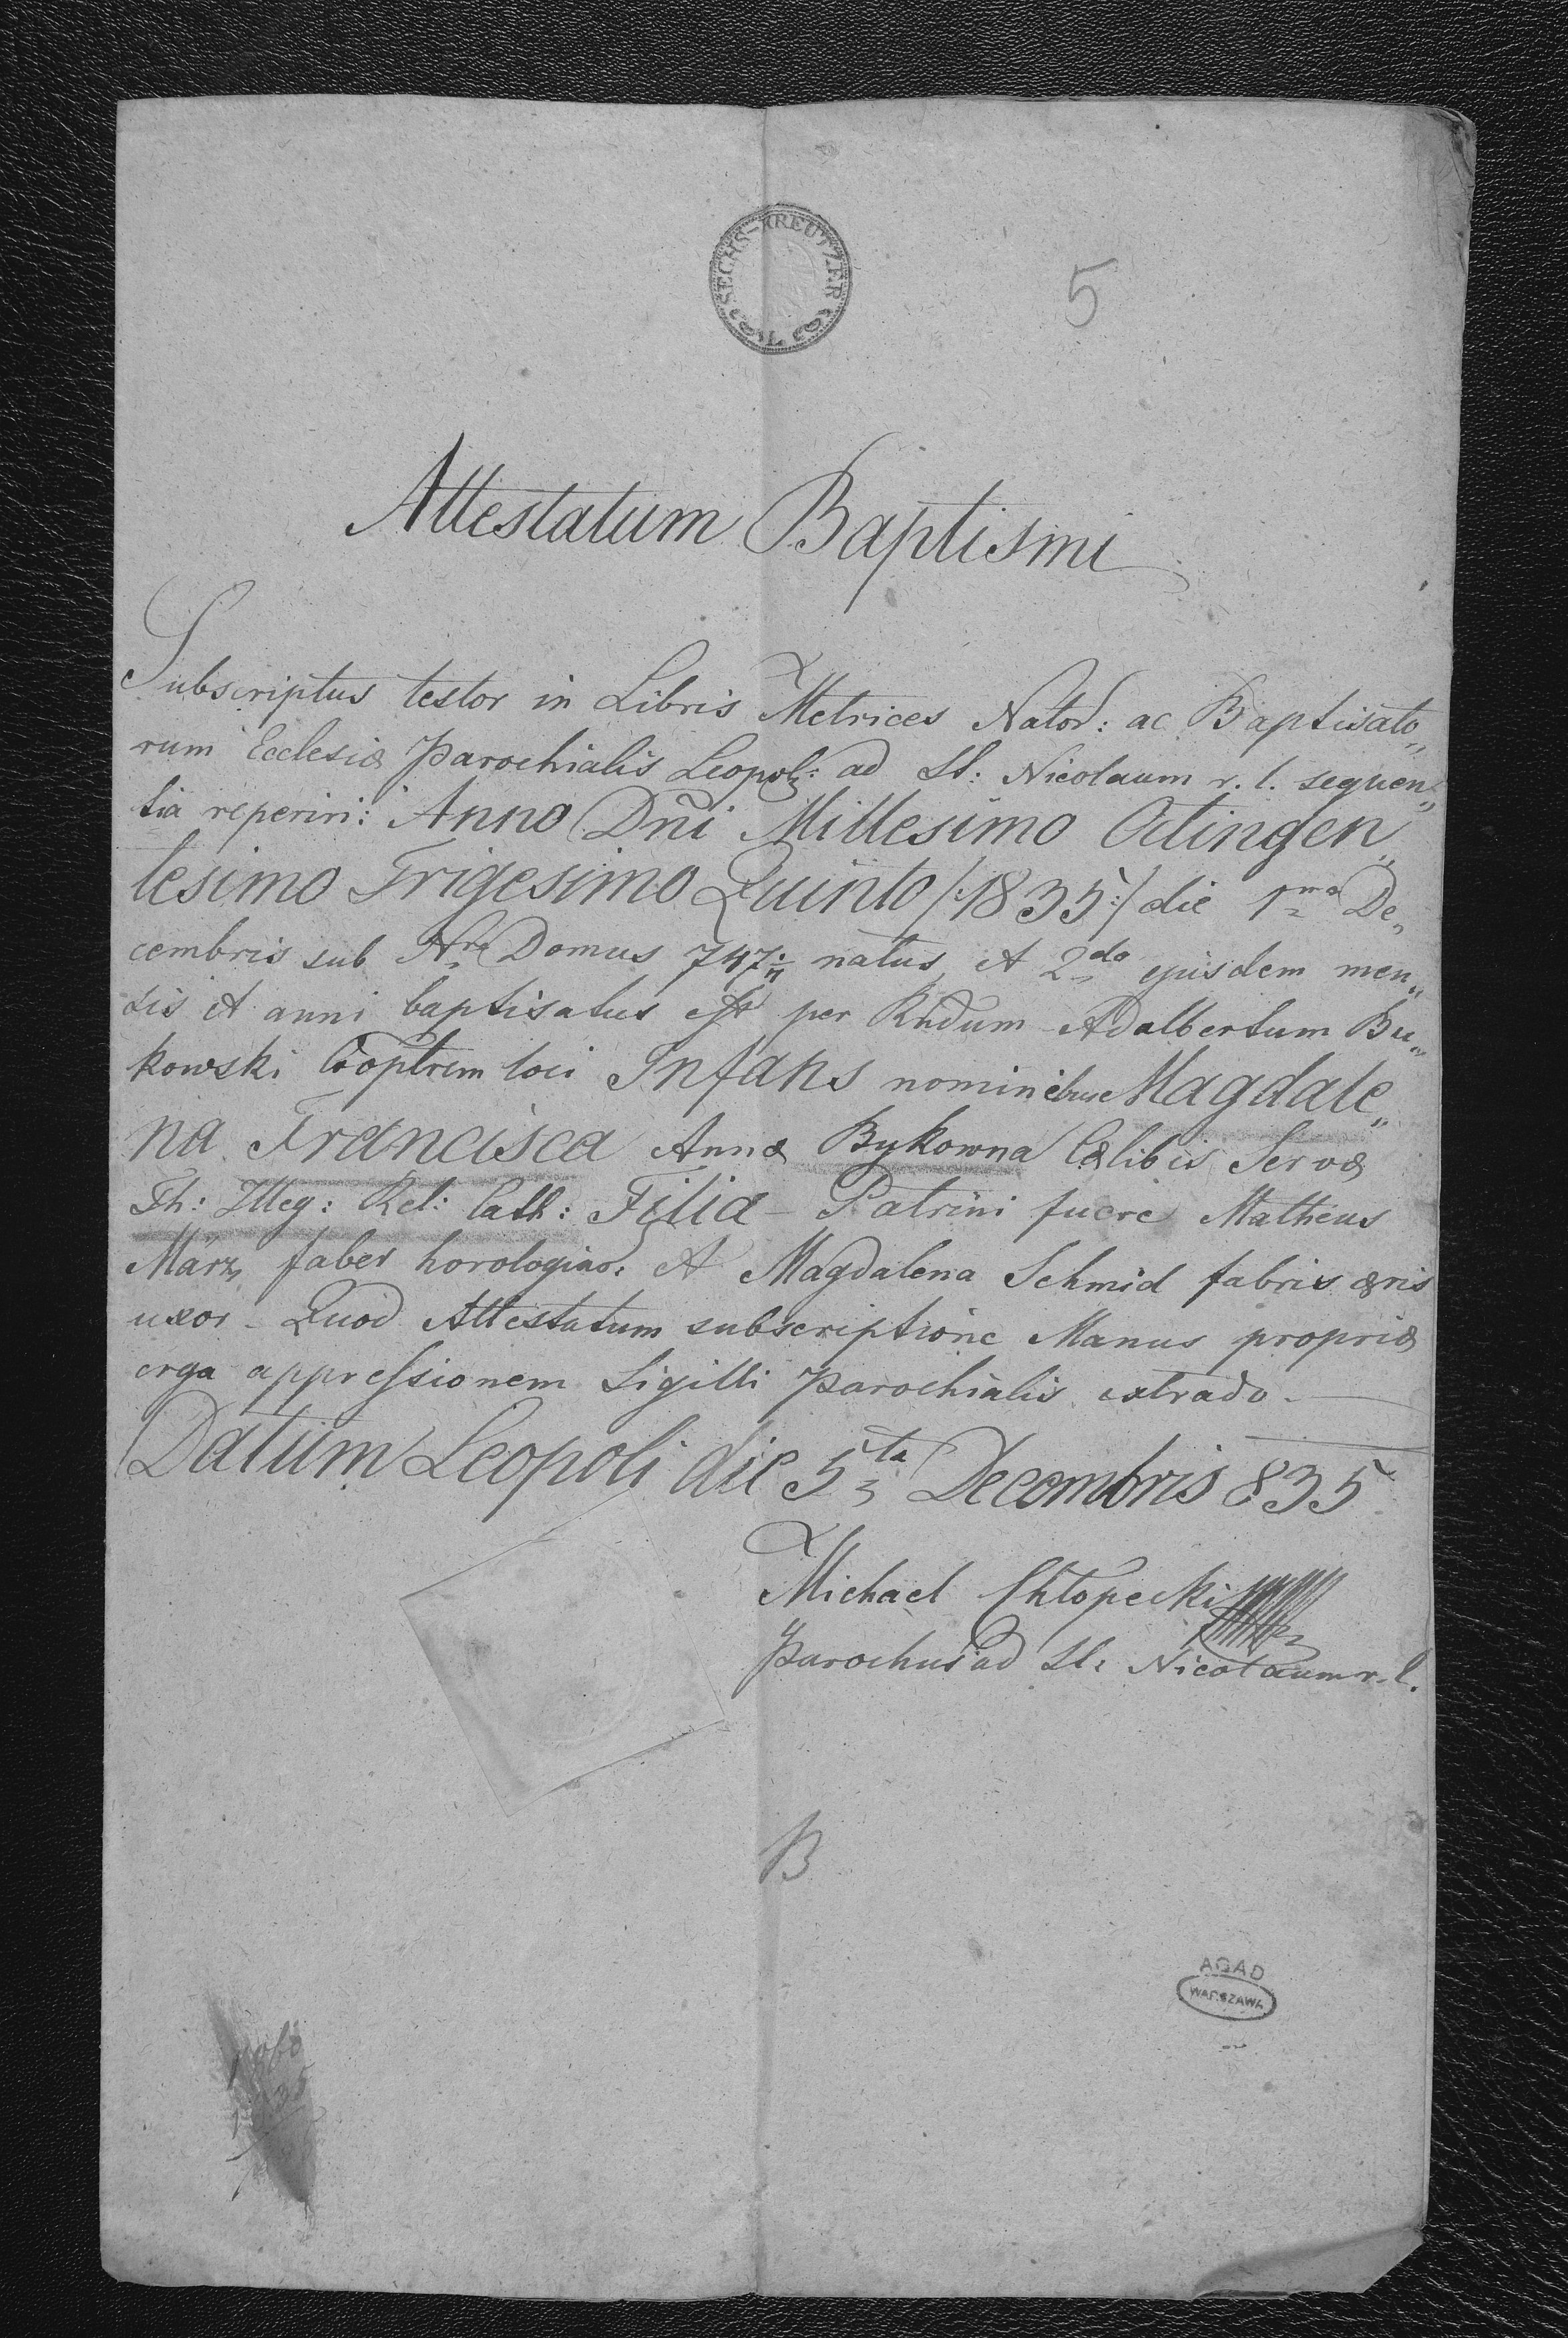 SECHS-KREUTZER
5
Attestatum Baptismi
Subscriptus testor in Libris Metrices Nator: ac Baptisato„
rum Ecclesiæ Parochialis Leopol: ad St: Nicolaum r. l. sequen„
tia reperiri: Anno Dñi Millesimo Octingen„
tesimo Trigesimo Quinto /:1835:/ die 1ma De„
cembris sub Nro Domus 747 natus et 2da ejusdem men„
sis et anni baptisatus est per Rndum Adalbertum Bu„
kowski Cooptrem loci Infans nominibus Magdale„
na Francisca Annæ Bykowna Cælibis Servæ
Th: Illeg: Rel: Cath: Filia – Patrini fuere Matheus
März faber horologior: et Magdalena Schmid fabris æris
uxor – Quod Attestatum subscriptione Manus propriæ
erga appressionem Sigilli Parochialis extrado –
Datum Leopoli die 5ta Decembris 835
Michael Chłopecki
Parochus ad St: Nicolaum r. l.
B
AGAD
WARSZAWA